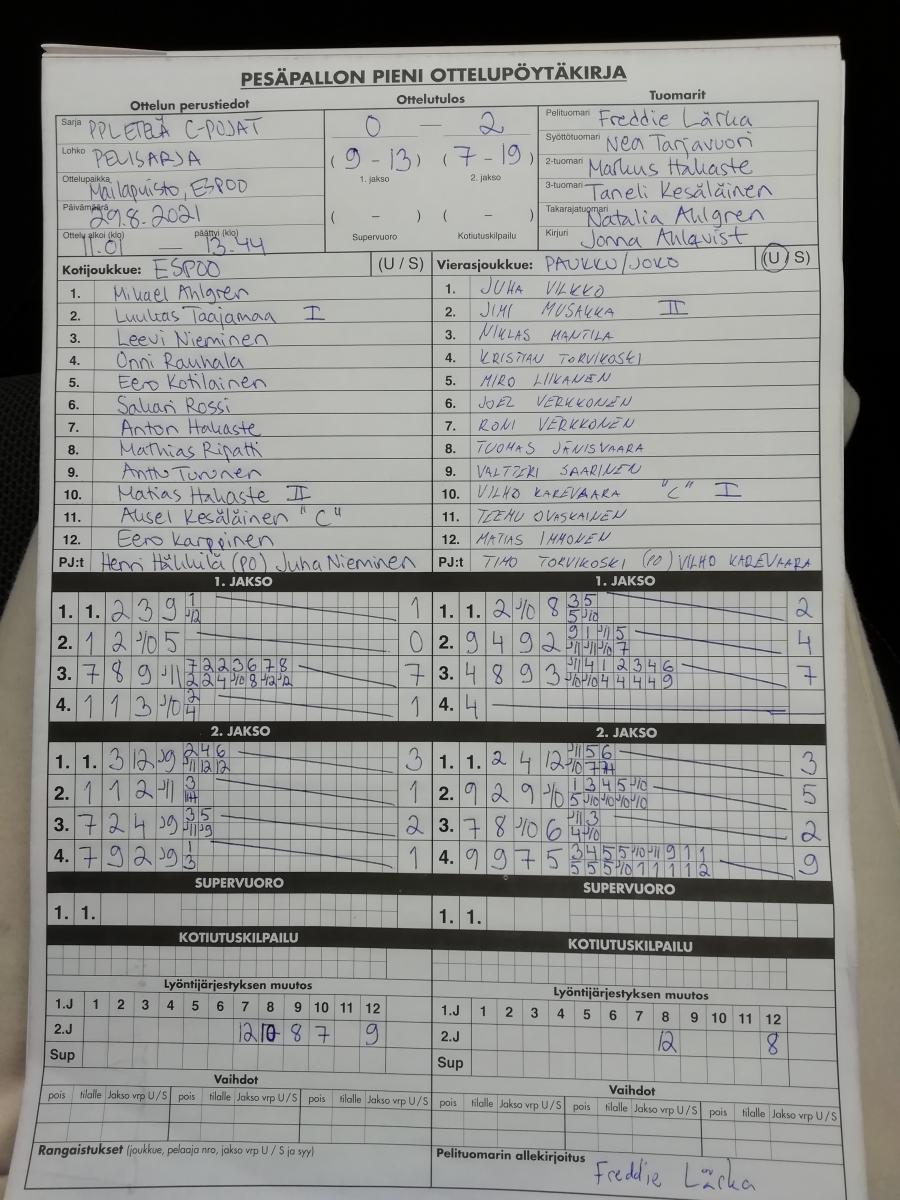 PESÄPALLON PIENI OTTELUPÖYTÄKIRJA
Ottelun perustiedot Ottelutulos Tuomarit
Sarja PPL ETELÄ C-POJAT
0 — 2
Pelituomari Freddie Lärka
Syöttötuomari Nea Tarjavuori
Lohko PELISARJA
(9 - 13) (7 - 19)
2-tuomari Markus Hakaste
1. jakso 2. jakso
Ottelupaikka Mailapuisto, ESPOO
3-tuomari Taneli Kesäläinen
Päivämäärä 29.8.2021
( - ) ( - )
Takarajatuomari Natalia Ahlgren
Ottelu alkoi (klo) 11.01 — päättyi (klo) 13.44
Supervuoro Kotiutuskilpailu
Kirjuri Jonna Ahlqvist
Kotijoukkue: ESPOO (U / S) Vierasjoukkue: PAUKKU/JOKO (U / S)
1. Mikael Ahlgren 1. JUHA VILKKO
2. Luukas Taajamaa I 2. JIMI MUSAKKA II
3. Leevi Nieminen 3. NIKLAS MANTILA
4. Onni Rauhala 4. KRISTIAN TORVIKOSKI
5. Eero Kotilainen 5. MIRO LIIKANEN
6. Sakari Rossi 6. JOEL VERKKONEN
7. Anton Hakaste 7. RONI VERKKONEN
8. Mathias Ripatti 8. TUOMAS JÄNISVAARA
9. Anttu Turunen 9. VALTTERI SAARINEN
10. Matias Hakaste II 10. VILHO KAREVAARA "C" I
11. Aksel Kesäläinen "C" 11. TEEMU OVASKAINEN
12. Eero Karppinen 12. MATIAS IMMONEN
PJ:t Henri Häkkilä (PO) Juha Nieminen PJ:t TIMO TORVIKOSKI (PO) VILHO KAREVAARA
1. JAKSO 1. JAKSO
1. 1. 2 3 9 1 1. 1. 2 J10 8 3 5 2
J12 5 J10
2. 1 2 J10 5 0 2. 9 4 9 2 9 1 J11 5 4
J11 J11 J10 7
3. 7 8 9 J11 7 2 2 3 6 7 8 7 3. 4 8 9 3 J11 4 1 2 3 4 6 7
2 2 4 J10 8 J12 J12 J10 J10 4 4 4 4 9
4. 1 1 3 J10 2 1 4. 4
4
2. JAKSO 2. JAKSO
1. 1. 3 12 J9 2 4 6 3 1. 1. 2 4 12 J11 5 6 3
J11 12 12 J10 7
2. 1 1 2 J11 3 1 2. 9 2 9 J10 1 3 4 5 J10 5
5 J10 J10 J10 J10
3. 7 2 4 J9 3 5 2 3. 7 8 J10 6 J11 3 2
J11 J9 4 J10
4. 7 9 2 J9 1 1 4. 9 9 7 5 3 4 5 5 J10 J11 9 1 1 9
3 5 5 5 J10 1 1 1 1 2
SUPERVUORO SUPERVUORO
1. 1. 1. 1.
KOTIUTUSKILPAILU KOTIUTUSKILPAILU
Lyöntijärjestyksen muutos Lyöntijärjestyksen muutos
1.J 1 2 3 4 5 6 7 8 9 10 11 12 1.J 1 2 3 4 5 6 7 8 9 10 11 12
2.J 12 10 8 7 9 2.J 12 8
Sup Sup
Vaihdot Vaihdot
pois tilalle Jakso vrp U/S pois tilalle Jakso vrp U/S pois tilalle Jakso vrp U/S pois tilalle Jakso vrp U/S pois tilalle Jakso vrp U/S pois tilalle Jakso vrp U/S
Rangaistukset (joukkue, pelaaja nro, jakso vrp U / S ja syy) Pelituomarin allekirjoitus
Freddie Lärka